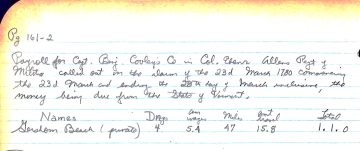 Pg 161-2
Payroll for Capt. Benj. Cooley's Co in Col. Ebenr Allens Regt of
Militia called out on the alarm of the 23d March 1780 commencing
the 23d March and ending the 28th day of March inclusive, the
money being due from the State of Vermont.
Names Days am wages Miles am travel Total
Gershom Beach (private) 4 5.4 47 15.8 1.1.0